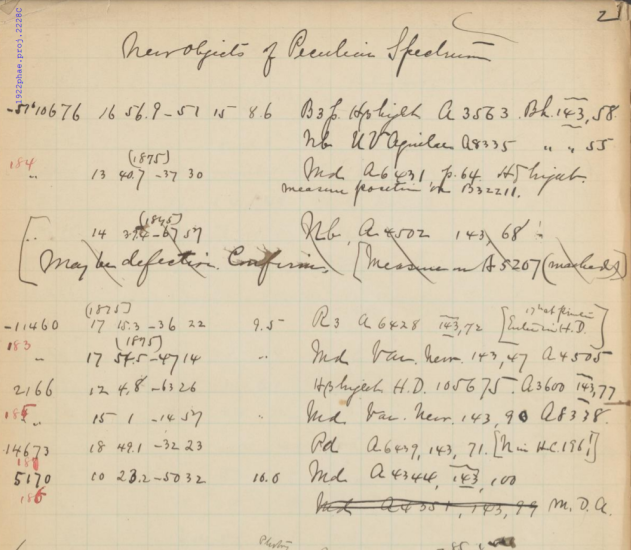 21
1922phae.proj.2228C
New objects of Peculiar Spectrum
-51°10676 16 56.9 -51 15 8.6 B3p. Hβ bright A 3563. Bk. 143, 58.
Nb UV Aquilae A8335 " " 55
184
(1875)
" 13 40.7 -37 30 Md A6431 p.64 bright.
measure position on B32211.
(1875)
" 14 -67 57 Nb, A4502 143, 68
[May be defection. Confirm. [Measure on A5207 (marked)]
(1875)
-11460 17 15.3 -36 22 9.5 R3 A 6428 143,72 [Enter in H.D.]
183
(1875)
" 17 54.5 -47 14 " Md Var. New. 143, 47 A4505
2166 12 4.8 -63 26 Hβ bright H.D. 105675. A3600 143,77
185 " 15 1 -14 57 " Md Var. New. 143, 90 A8338.
14673 18 49.1 -32 23 Pd A6439, 143, 71. [N in H.C.196]
181
5170 10 23.2 -50 32 10.0 Md A4344, 143, 100
186
Md A4351, 143, 99 M.D.A.